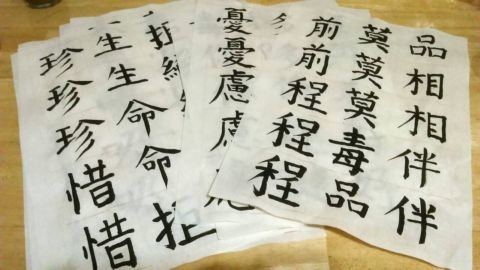 品相相伴伴
莫莫莫毒品
前前程程程
憂憂慮慮慮
拒絕
生生命命拒
珍珍珍惜惜